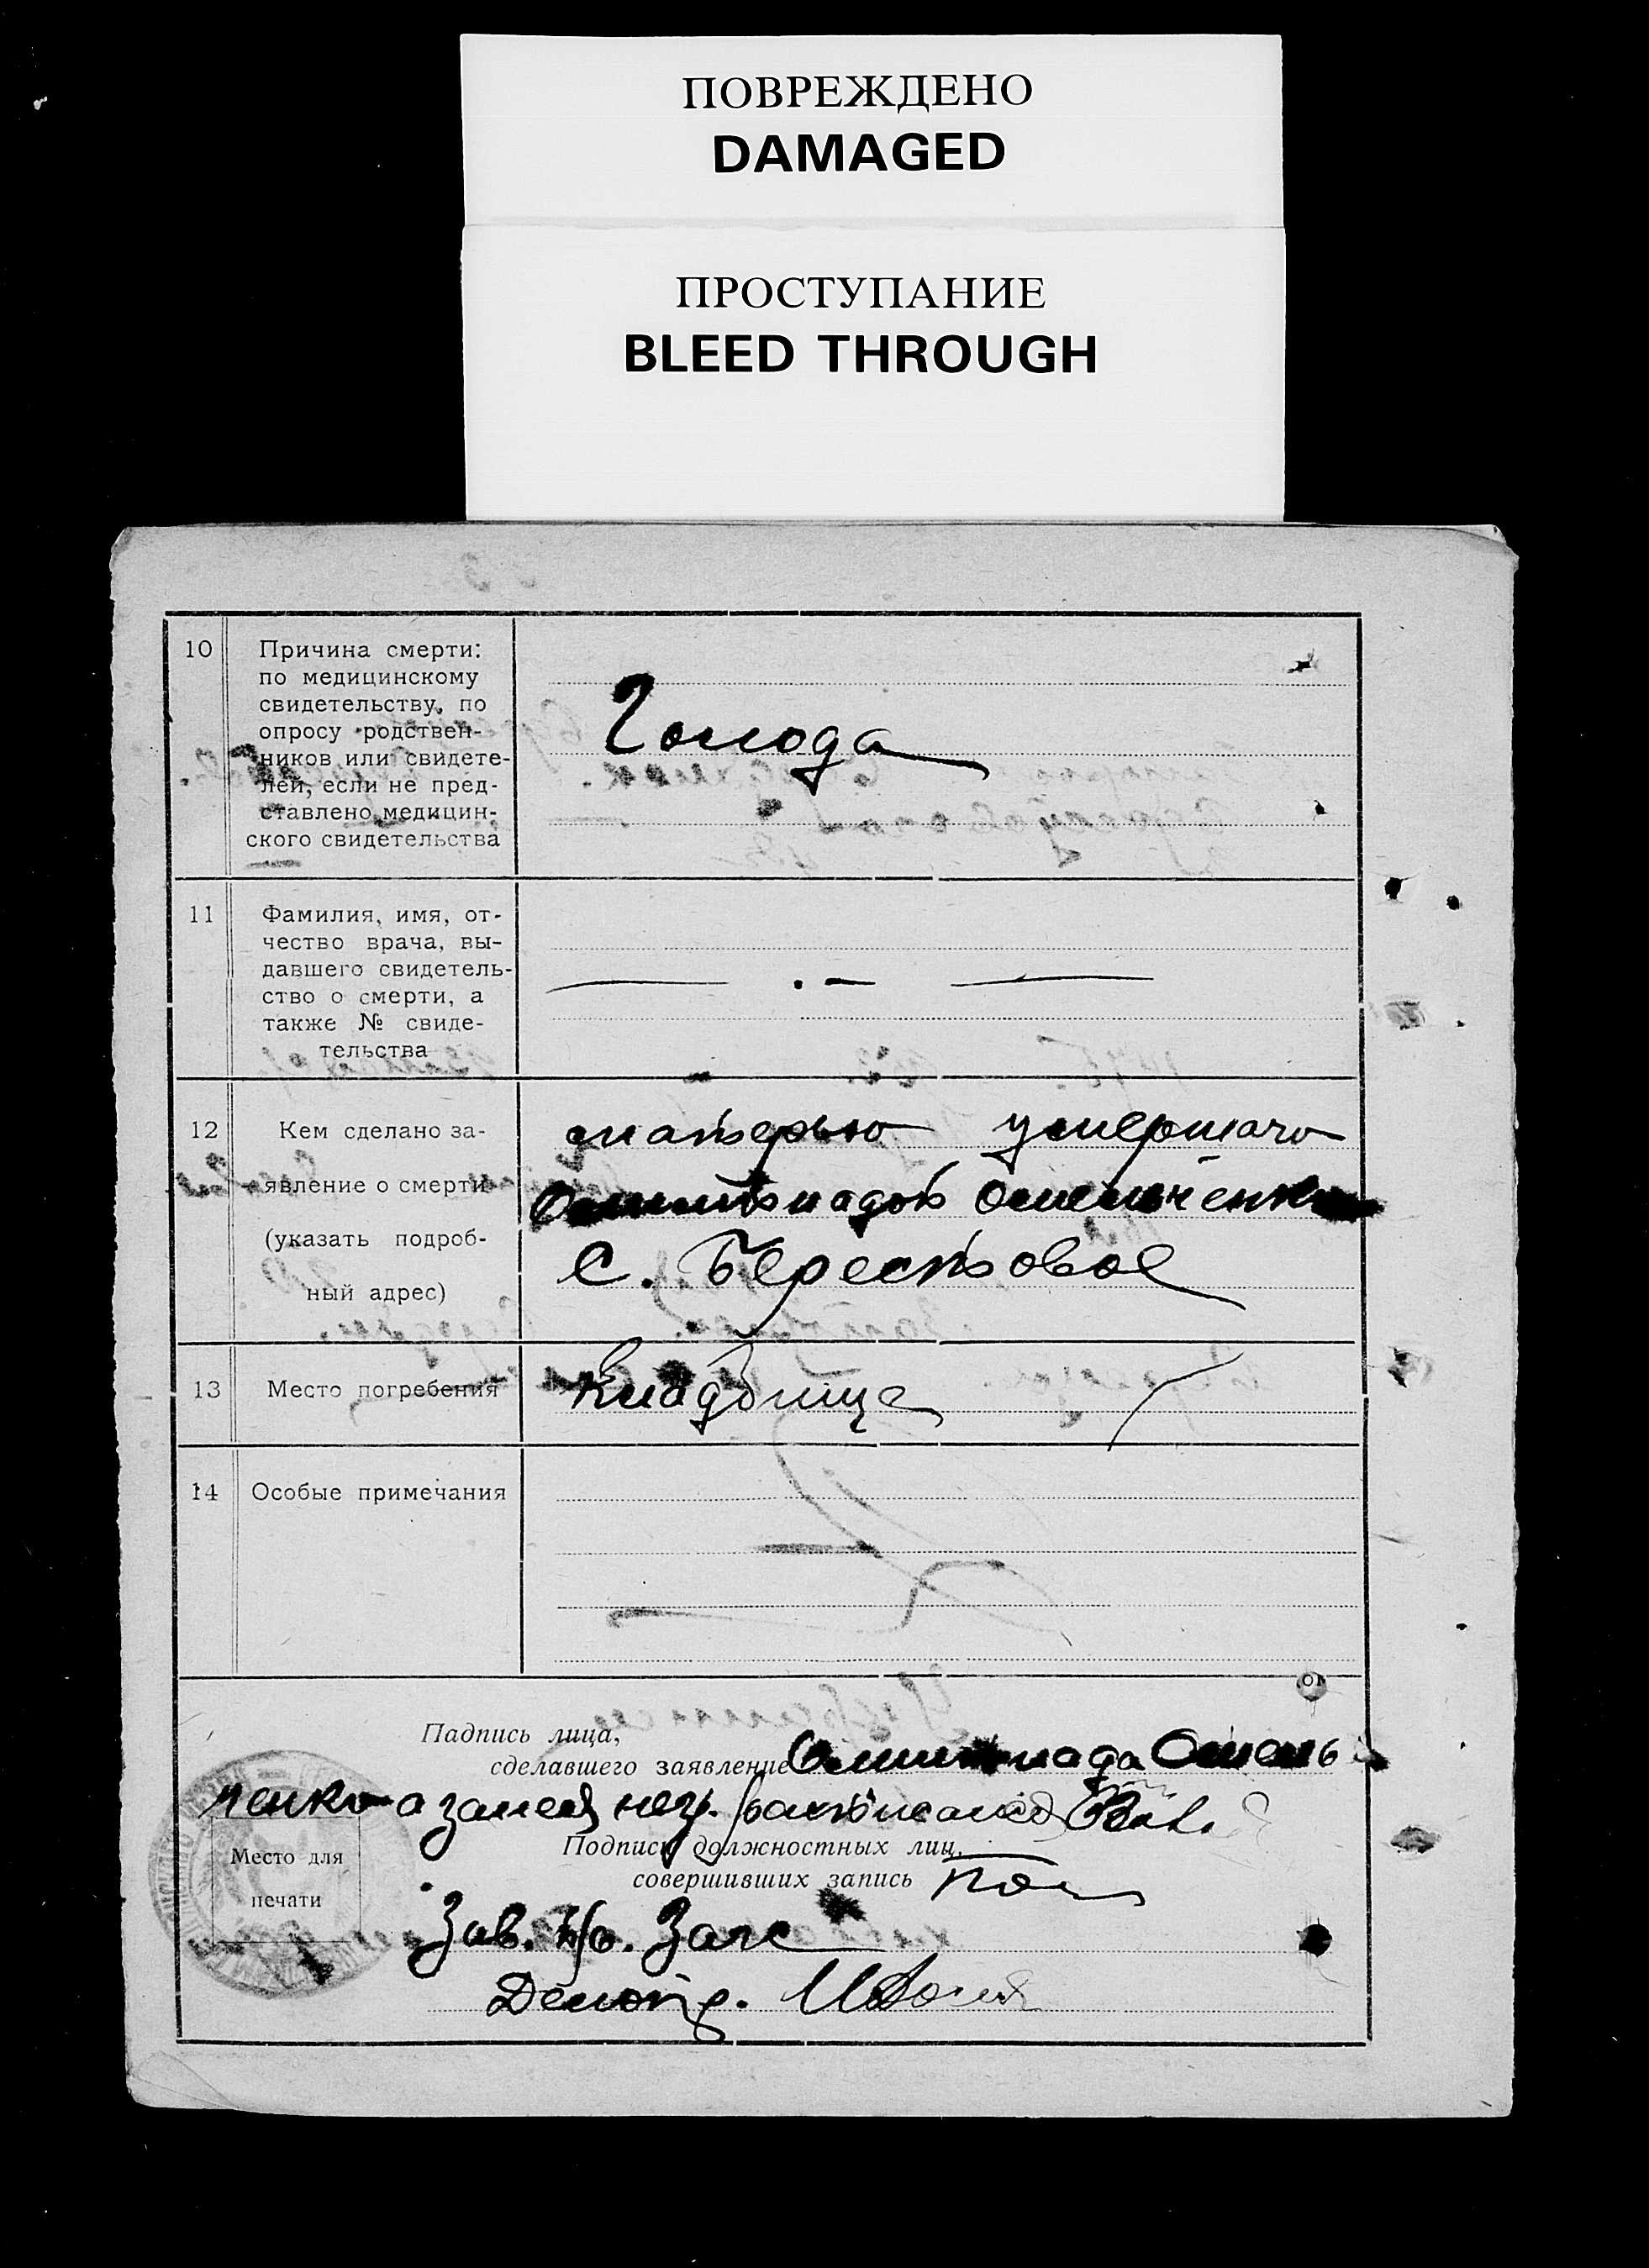 ПОВРЕЖДЕНО
DAMAGED
ПРОСТУПАНИЕ
BLEED THROUGH
10
Причина смерти:
по медицинскому
свидетельству, по
опросу родствен-
ников или свидете-
лей, если не пред-
ставлено медицин-
ского свидетельства
Голода
11
Фамилия, имя, от-
чество врача, вы-
давшего свидетель-
ство о смерти, а
также № свиде-
тельства
12
Кем сделано за-
явление о смерти
(указать подроб-
ный адрес)
матерью умершаго
С. Берестовое
13
Место погребения
Кладбище
14
Особые примечания
Падпись лица,
сделавшего заявление
Подписи должностных лиц,
совершивших запись
Место для
печати
Зав. Б/о. Загс